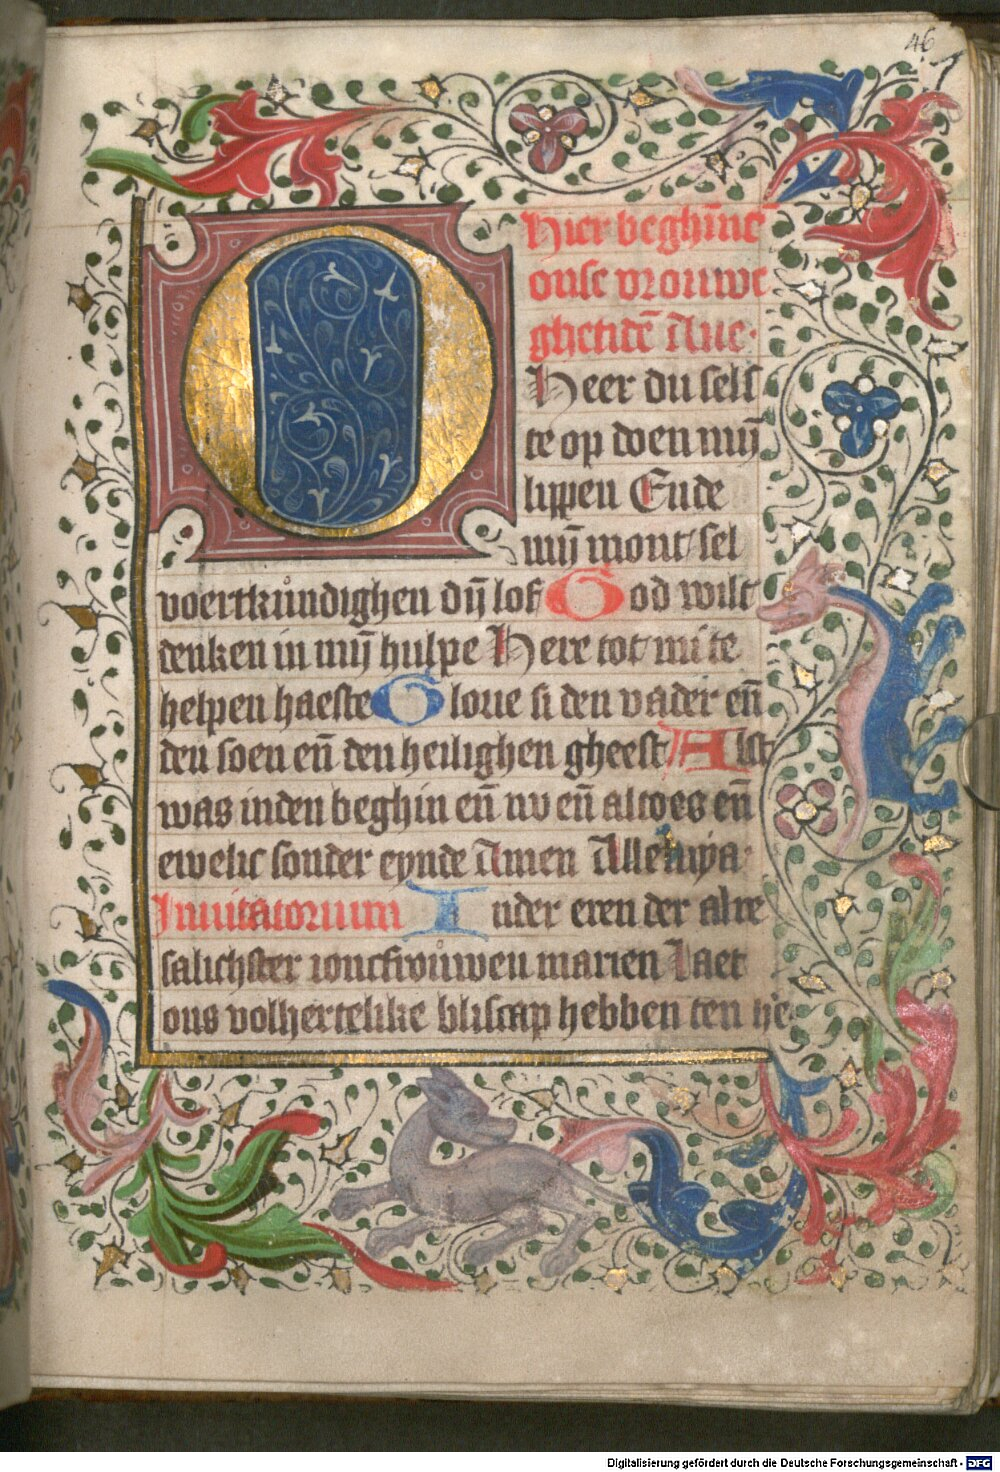 46
Hier beghīnē
onse vrouwe
ghetidē Aue·
O Heer du sels
te op doen mijn̄
lippen Ende
mijn̄ mont sel
voertkůndighen dijn̄ lof God wilt
denken in mijn̄ hulpe Here tot mi te
helpen haeste Glorie si den vader en̄
den soen en̄ den heilighen gheest Alst
was inden beghin en̄ nv en̄ altoes en̄
ewelic sonder eynde Amen Alleluya
Inuitatorium Inder eren der alre
salichster ioncfroůwen marien Laet
ons volhertelike bliscap hebben ten
Digitalisierung gefördert durch die Deutsche Forschungsgemeinschaft - DFG